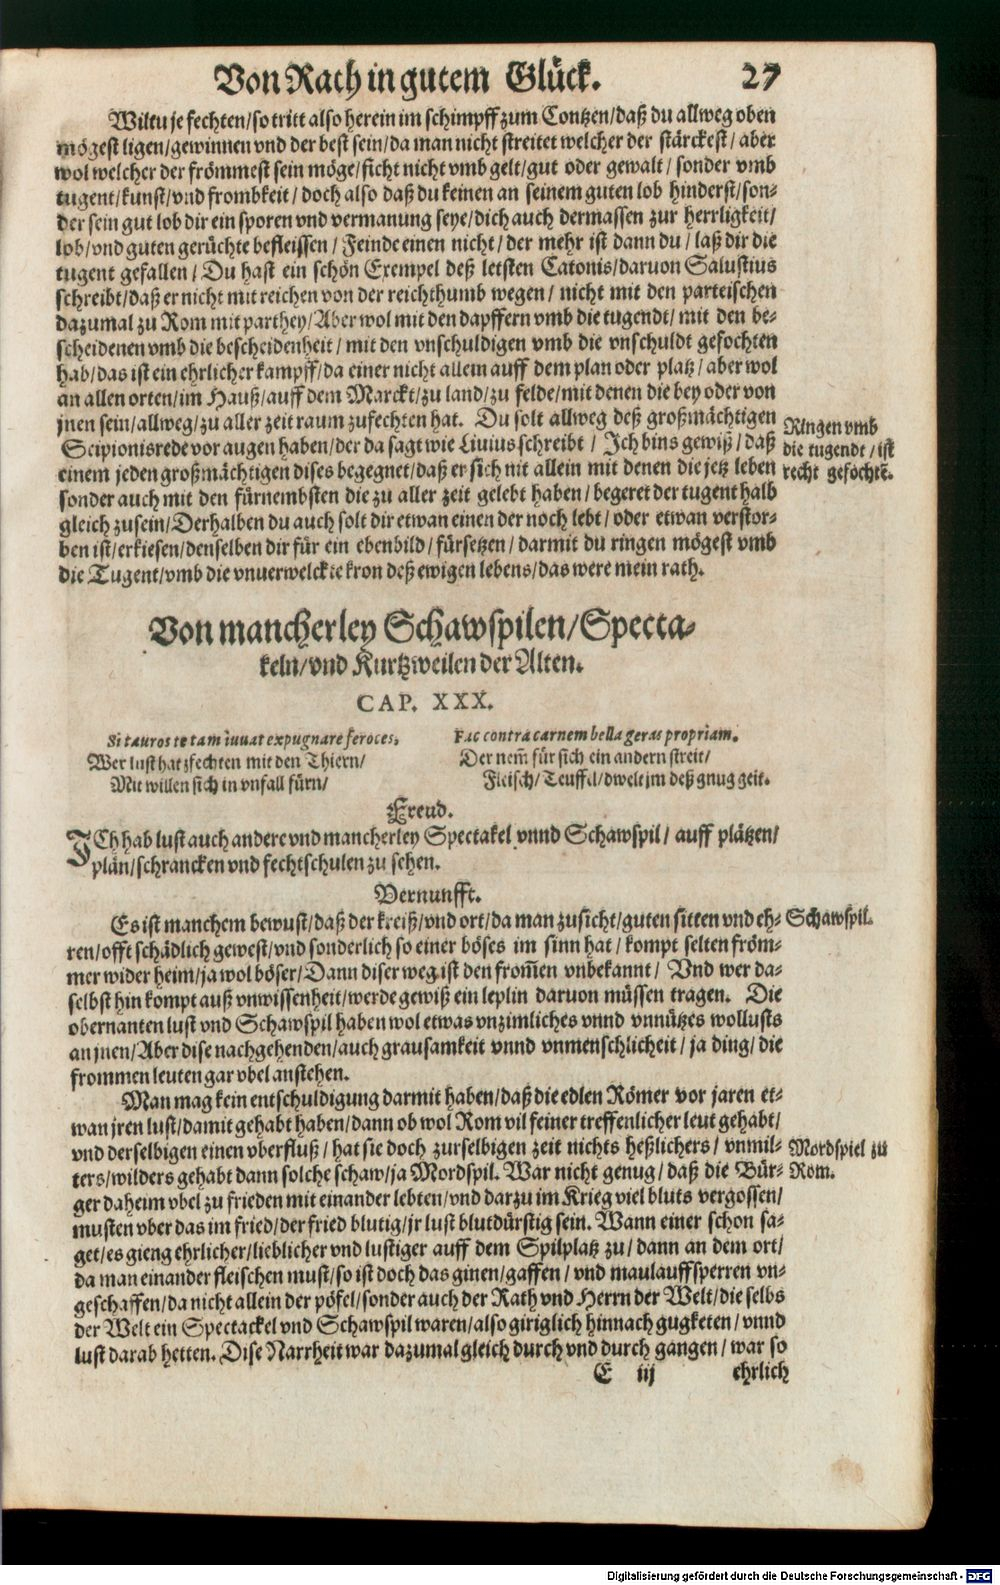 Von Rath in gutem Glück. 27
Wiltu je fechten/so tritt also herein im schimpff zum Contzen/daß du allweg oben
mögest ligen/gewinnen vnd der best sein/da man nicht streitet welcher der stärckest/aber
wol welcher der frömmest sein möge/ficht nicht vmb gelt/gut oder gewalt/sonder vmb
tugent/kunst/vnd frombkeit/doch also daß du keinen an seinem guten lob hinderst/son-
der sein gut lob dir ein sporen vnd vermanung seye/dich auch dermassen zur herrligkeit/
lob/vnd guten gerüchte befleissen/Feinde einen nicht/der mehr ist dann du/laß dir die
tugent gefallen/Du hast ein schön Exempel deß letsten Catonis/daruon Salustius
schreibt/daß er nicht mit reichen von der reichthumb wegen/nicht mit den parteischen
dazumal zu Rom mit parthey/Aber wol mit den dapffern vmb die tugendt/mit den be-
scheidenen vmb die bescheidenheit/mit den vnschuldigen vmb die vnschuldt gefochten
hab/das ist ein ehrlicher kampff/da einer nicht allein auff dem plan oder platz/aber wol
an allen orten/im Hauß/auff dem Marckt/zu land/zu felde/mit denen die bey oder von
jnen sein/allweg/zu aller zeit raum zufechten hat. Du solt allweg deß großmächtigen
Scipionis rede vor augen haben/der da sagt wie Liuius schreibt/Ich bins gewiß/daß
einem jeden großmächtigen dises begegnet/daß er sich nit allein mit denen die jetz leben
sonder auch mit den fürnembsten die zu aller zeit gelebt haben/begeret der tugent halb
gleich zusein/Derhalben du auch solt dir etwan einen der noch lebt/oder etwan verstor-
ben ist/erkiesen/denselben dir für ein ebenbild/fürsetzen/darmit du ringen mögest vmb
die Tugent/vmb die vnuerwelckte kron deß ewigen lebens/das were mein rath.
Ringen vmb
die tugendt/ist
recht gefochtẽ.
Von mancherley Schawspilen/Specta-
keln/vnd Kurtzweilen der Alten.
CAP. XXX.
Si tauros te tam iuuat expugnare feroces,
Wer lust hat zfechten mit den Thiern/
Mit willen sich in vnfall fürn/
Fac contra carnem bella geras propriam.
Der nem̃ für sich ein andern streit/
Fleisch/Teuffel/dwelt jm deß gnug geit.
Freud.
ICh hab lust auch andere vnd mancherley Spectakel vnnd Schawspil/auff plätzen/
plän/schrancken vnd fechtschulen zu sehen.
Vernunfft.
Es ist manchem bewust/daß der kreiß/vnd ort/da man zusicht/guten sitten vnd eh-
ren/offt schädlich gewest/vnd sonderlich so einer böses im sinn hat/kompt selten fröm-
mer wider heim/ja wol böser/Dann diser weg ist den from̃en vnbekannt/Vnd wer da-
selbst hin kompt auß vnwissenheit/werde gewiß ein leplin daruon müssen tragen. Die
obernanten lust vnd Schawspil haben wol etwas vnzimliches vnnd vnnützes wollusts
an jnen/Aber dise nachgehenden/auch grausamkeit vnnd vnmenschlicheit/ja ding/die
frommen leuten gar vbel anstehen.
Schawspil.
Man mag kein entschuldigung darmit haben/daß die edlen Römer vor jaren et-
wan jren lust/damit gehabt haben/dann ob wol Rom vil feiner treffenlicher leut gehabt/
vnd derselbigen einen vberfluß/hat sie doch zurselbigen zeit nichts heßlichers/vnmil-
ters/wilders gehabt dann solche schaw/ja Mordspil. War nicht genug/daß die Bür-
ger daheim vbel zu frieden mit einander lebten/vnd darzu im Krieg viel bluts vergossen/
musten vber das im fried/der fried blutig/jr lust blutdürstig sein. Wann einer schon sa-
get/es gieng ehrlicher/lieblicher vnd lustiger auff dem Spilplatz zu/dann an dem ort/
da man einander fleischen must/so ist doch das ginen/gaffen/vnd maulauffsperren vn-
geschaffen/da nicht allein der pöfel/sonder auch der Rath vnd Herrn der Welt/die selbs
der Welt ein Spectackel vnd Schawspil waren/also giriglich hinnach gugketen/vnnd
lust darab hetten. Dise Narrheit war dazumal gleich durch vnd durch gangen/war so
Mordspiel zů
Rom.
E iij ehrlich
Digitalisierung gefördert durch die Deutsche Forschungsgemeinschaft - DFG